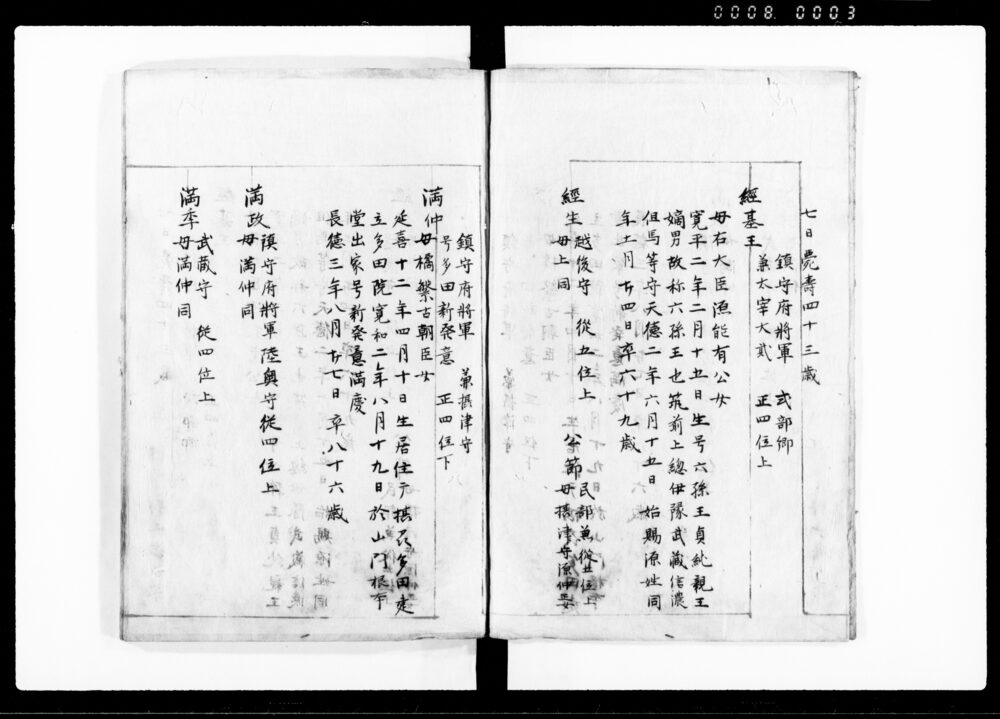 0008 0003
七日薨壽四十三歳
經基王
鎮守府將軍 式部卿
兼太宰大貳 正四位上
母右大臣源能有公女
寛平二年二月十五日生号六孫王貞純親王
嫡男故称六孫王也筑前上總伊豫武藏信濃
但馬等守天德二年六月十五日始賜源姓同
年十一月廿四日卒六十九歳
經生
越後守 從五位上
母上同
公節
民部兼從五位上
母摂津守源仲
満仲
鎮守府將軍 兼摂津守
号多田新発意 正四位下
母橘繁古朝臣女
延喜十二年四月十日生居住于摂多田建
立多田院寛和二年八月十九日於山門根本
堂出家号新発意満慶
長德三年八月廿七日卒八十六歳
満政
鎮守府將軍陸奥守從四位上
母満仲同
満季
武藏守 從四位上
母満仲同